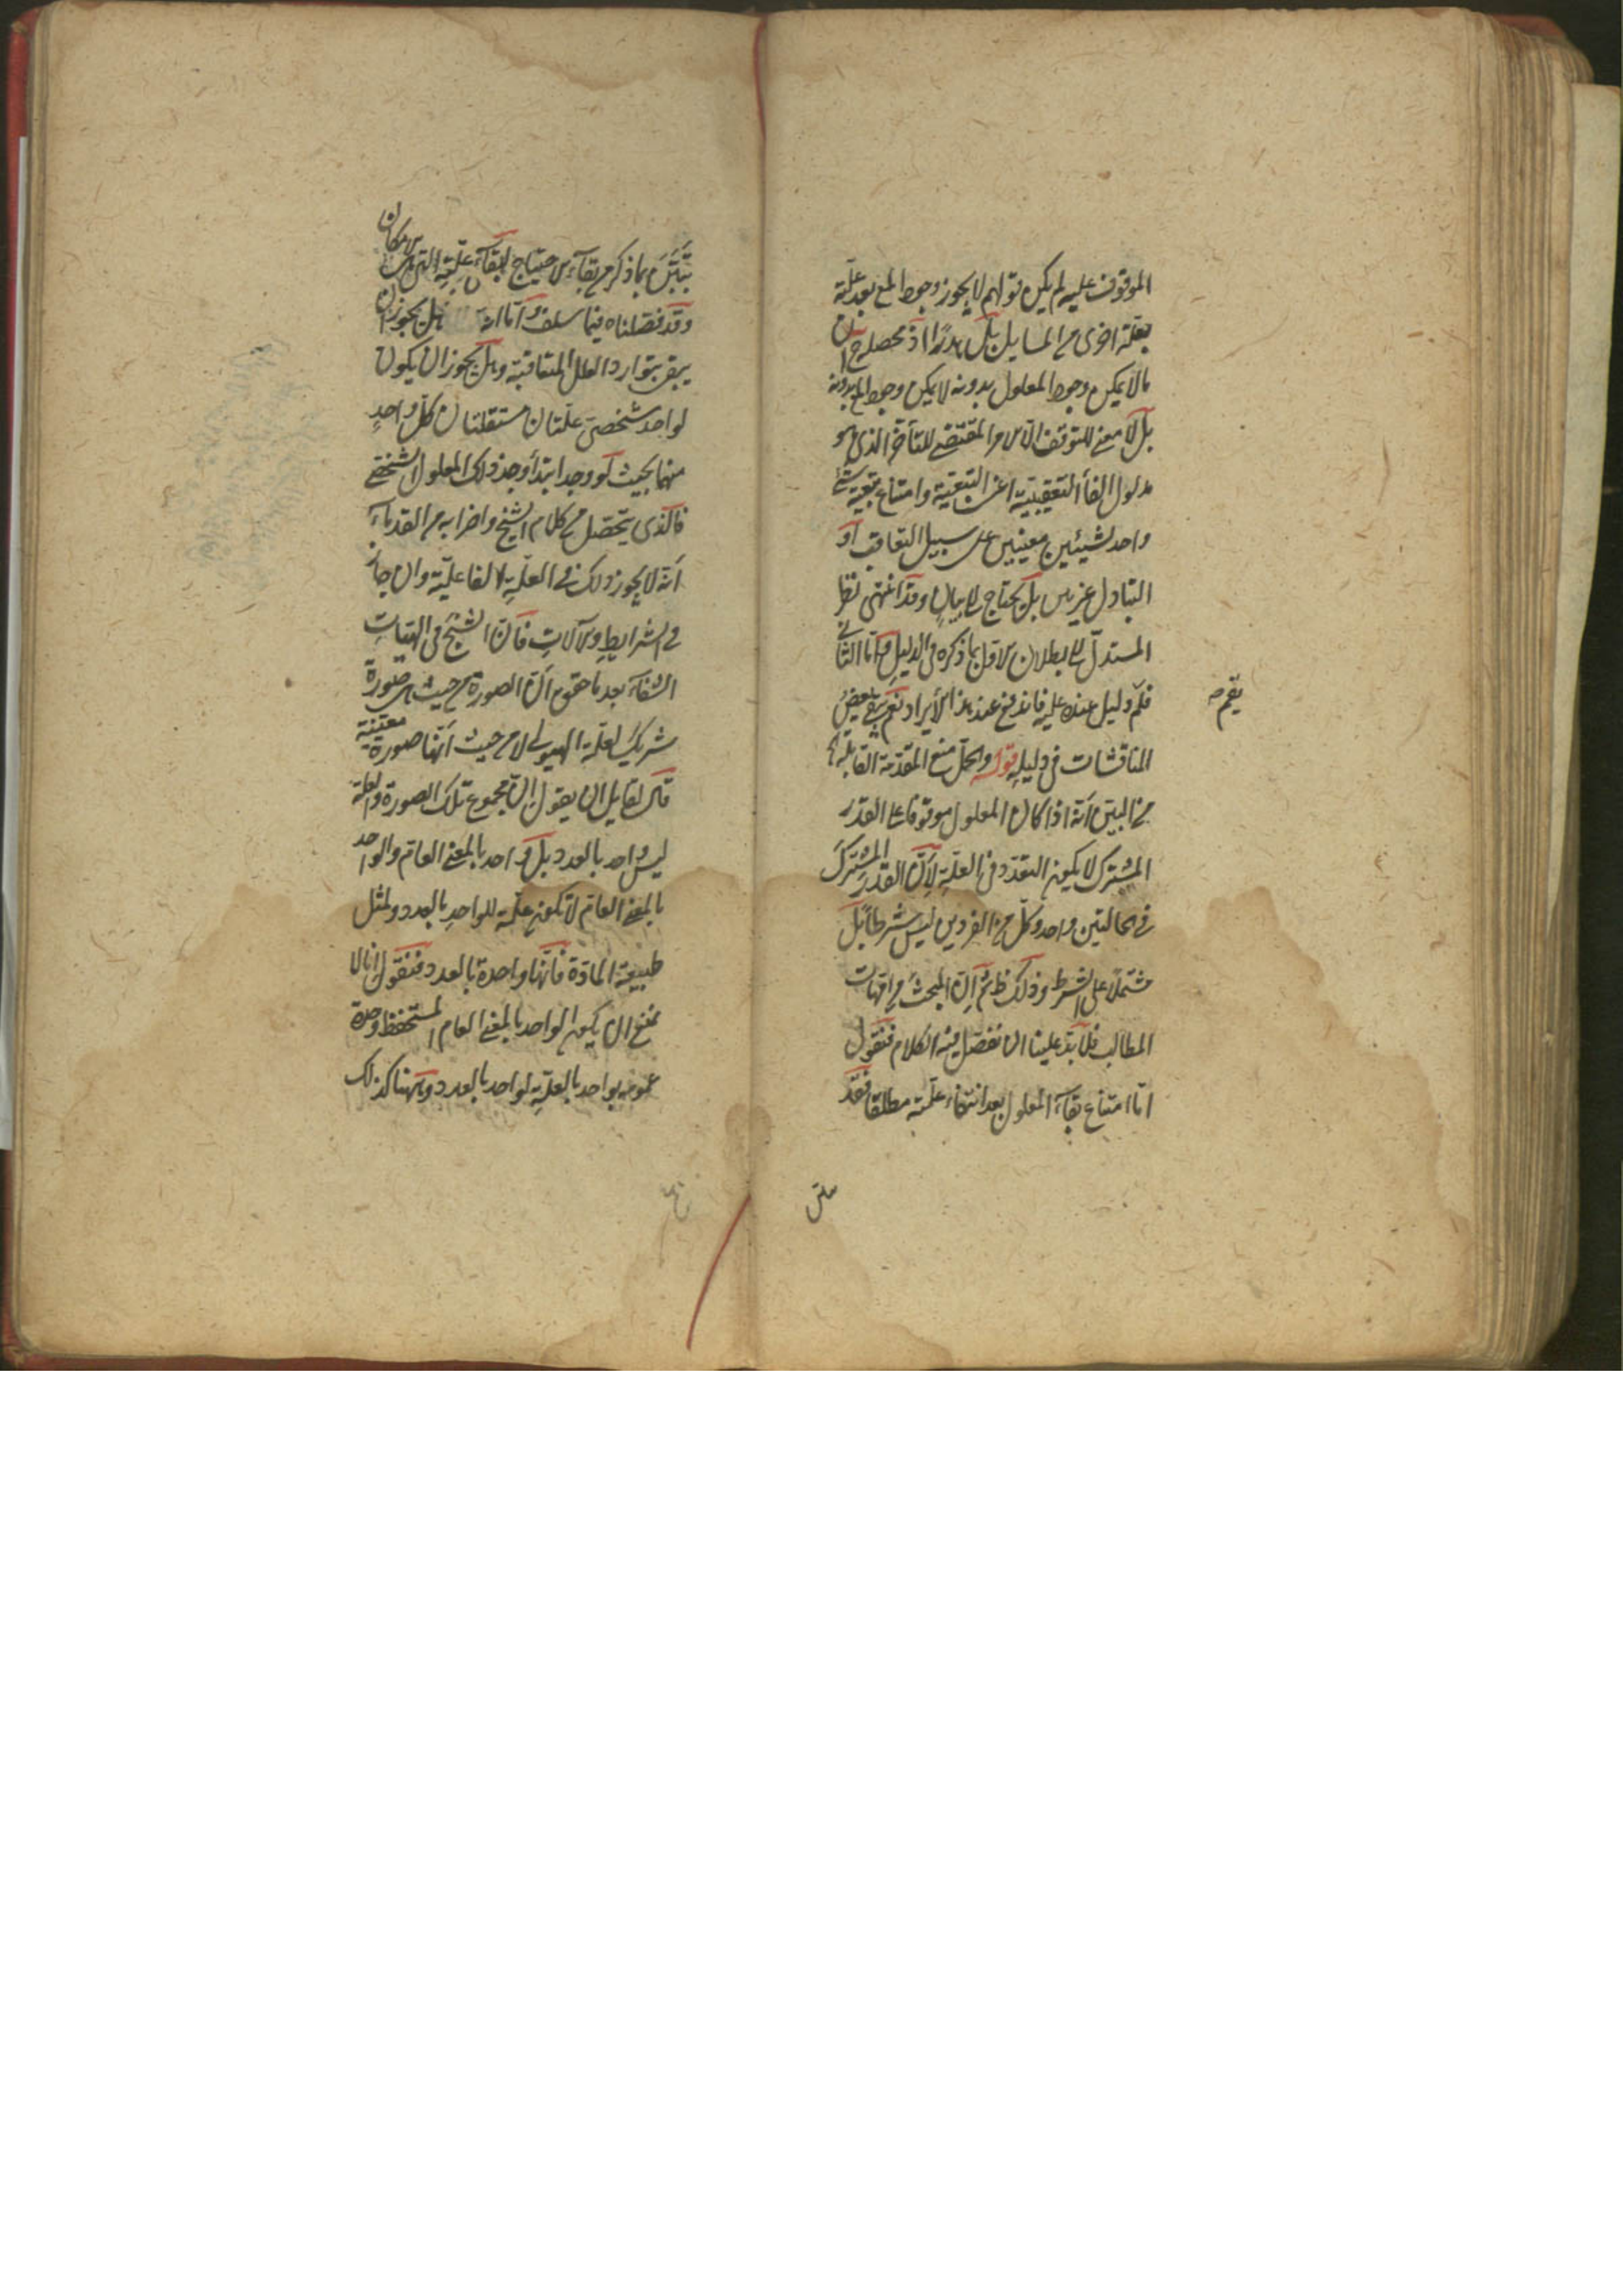 الموقوف عليه لم يكن قولهم لا يجوز وجود المع بعد علّة
بعلّة اخرى من المسايل بل هدرًا اذ محصله ح ان
ما لا يمكن وجود المعلول بدونه لا يمكن وجود المع بدونه
بل لا معنى للتوقف الا الامر المقتضى للتأخر الذى هو
مدلول الفأ التعقيبيّة اعنى التبعيّة وامتناع تبعيّة شئ
واحد لشيئين معينين على سبيل التعاقب او
التبادل غير بين بل يحتاج الى بيان وقد انتهى نظر
المستدلّ الى بطلان الاوّل بما ذكره فى الدليل وامّا الثانى
فلم دليل عنده عليه فاندفع عنه هذا الايراد نعم يبقى بعض
يقم صه
المناقشات فى دليله قوله والحلّ منع المقدّمة القايلة الخ
من البيّن انّه اذا كان المعلول موقوفا على القدر
المشترك لا يكون التعدّد فى العلّة لانّ القدر المشترك
فى الحالتين واحد وكلّ من الفردين ليس شرطا بل
مشتملا على الشرط وذلك ظ ثم انّ المبحث من امّهات
المطالب فلا بدّ علينا ان نفصّل فيه الكلام فنقول
امّا امتناع بقآء المعلول بعد انتفاء علّته مطلقا فقد
تبيّن بما ذكر من بقآء الاحتياج لبقآء علّته التى هى الامكان
وقد فصّلناه فيما سلف وامّا انّه هل يجوز ان
يبقى بتوارد العلل المتعاقبة وهل يجوز ان يكون
لواحد شخصىّ علّتان مستقلتان كلّ واحدٍ
منهما بحيث لو وجد ابتدأ وجد ذلك المعلول الشخصى
فالذى يتحصّل من كلام الشيخ واضرابه من القدمآء
انّه لا يجوز ذلك فى العلّة الفاعليّة وان جاز
فى الشرايط والآلات فانّ الشيخ فى الهيّات
الشفآء بعد ما حقق انّ الصورة من حيث هى صورة
شريك لعلّة الهيولى لا من حيث انّها صورة معيّنة
قال لقايل ان يقول انّ مجموع تلك الصورة والعلّة
ليس واحد بالعدد بل واحد بالمعنى العام والواحد
بالمعنى العام لا تكون علّة للواحد بالعدد ولمثل
طبيعة المادّة فانّها واحدة بالعدد فنقول انا لا
نمنع ان يكون الواحد بالمعنى العام المستحفظ وحدة
عمومه بواحد بالعدد علّة لواحد بالعدد وههنا كذلك